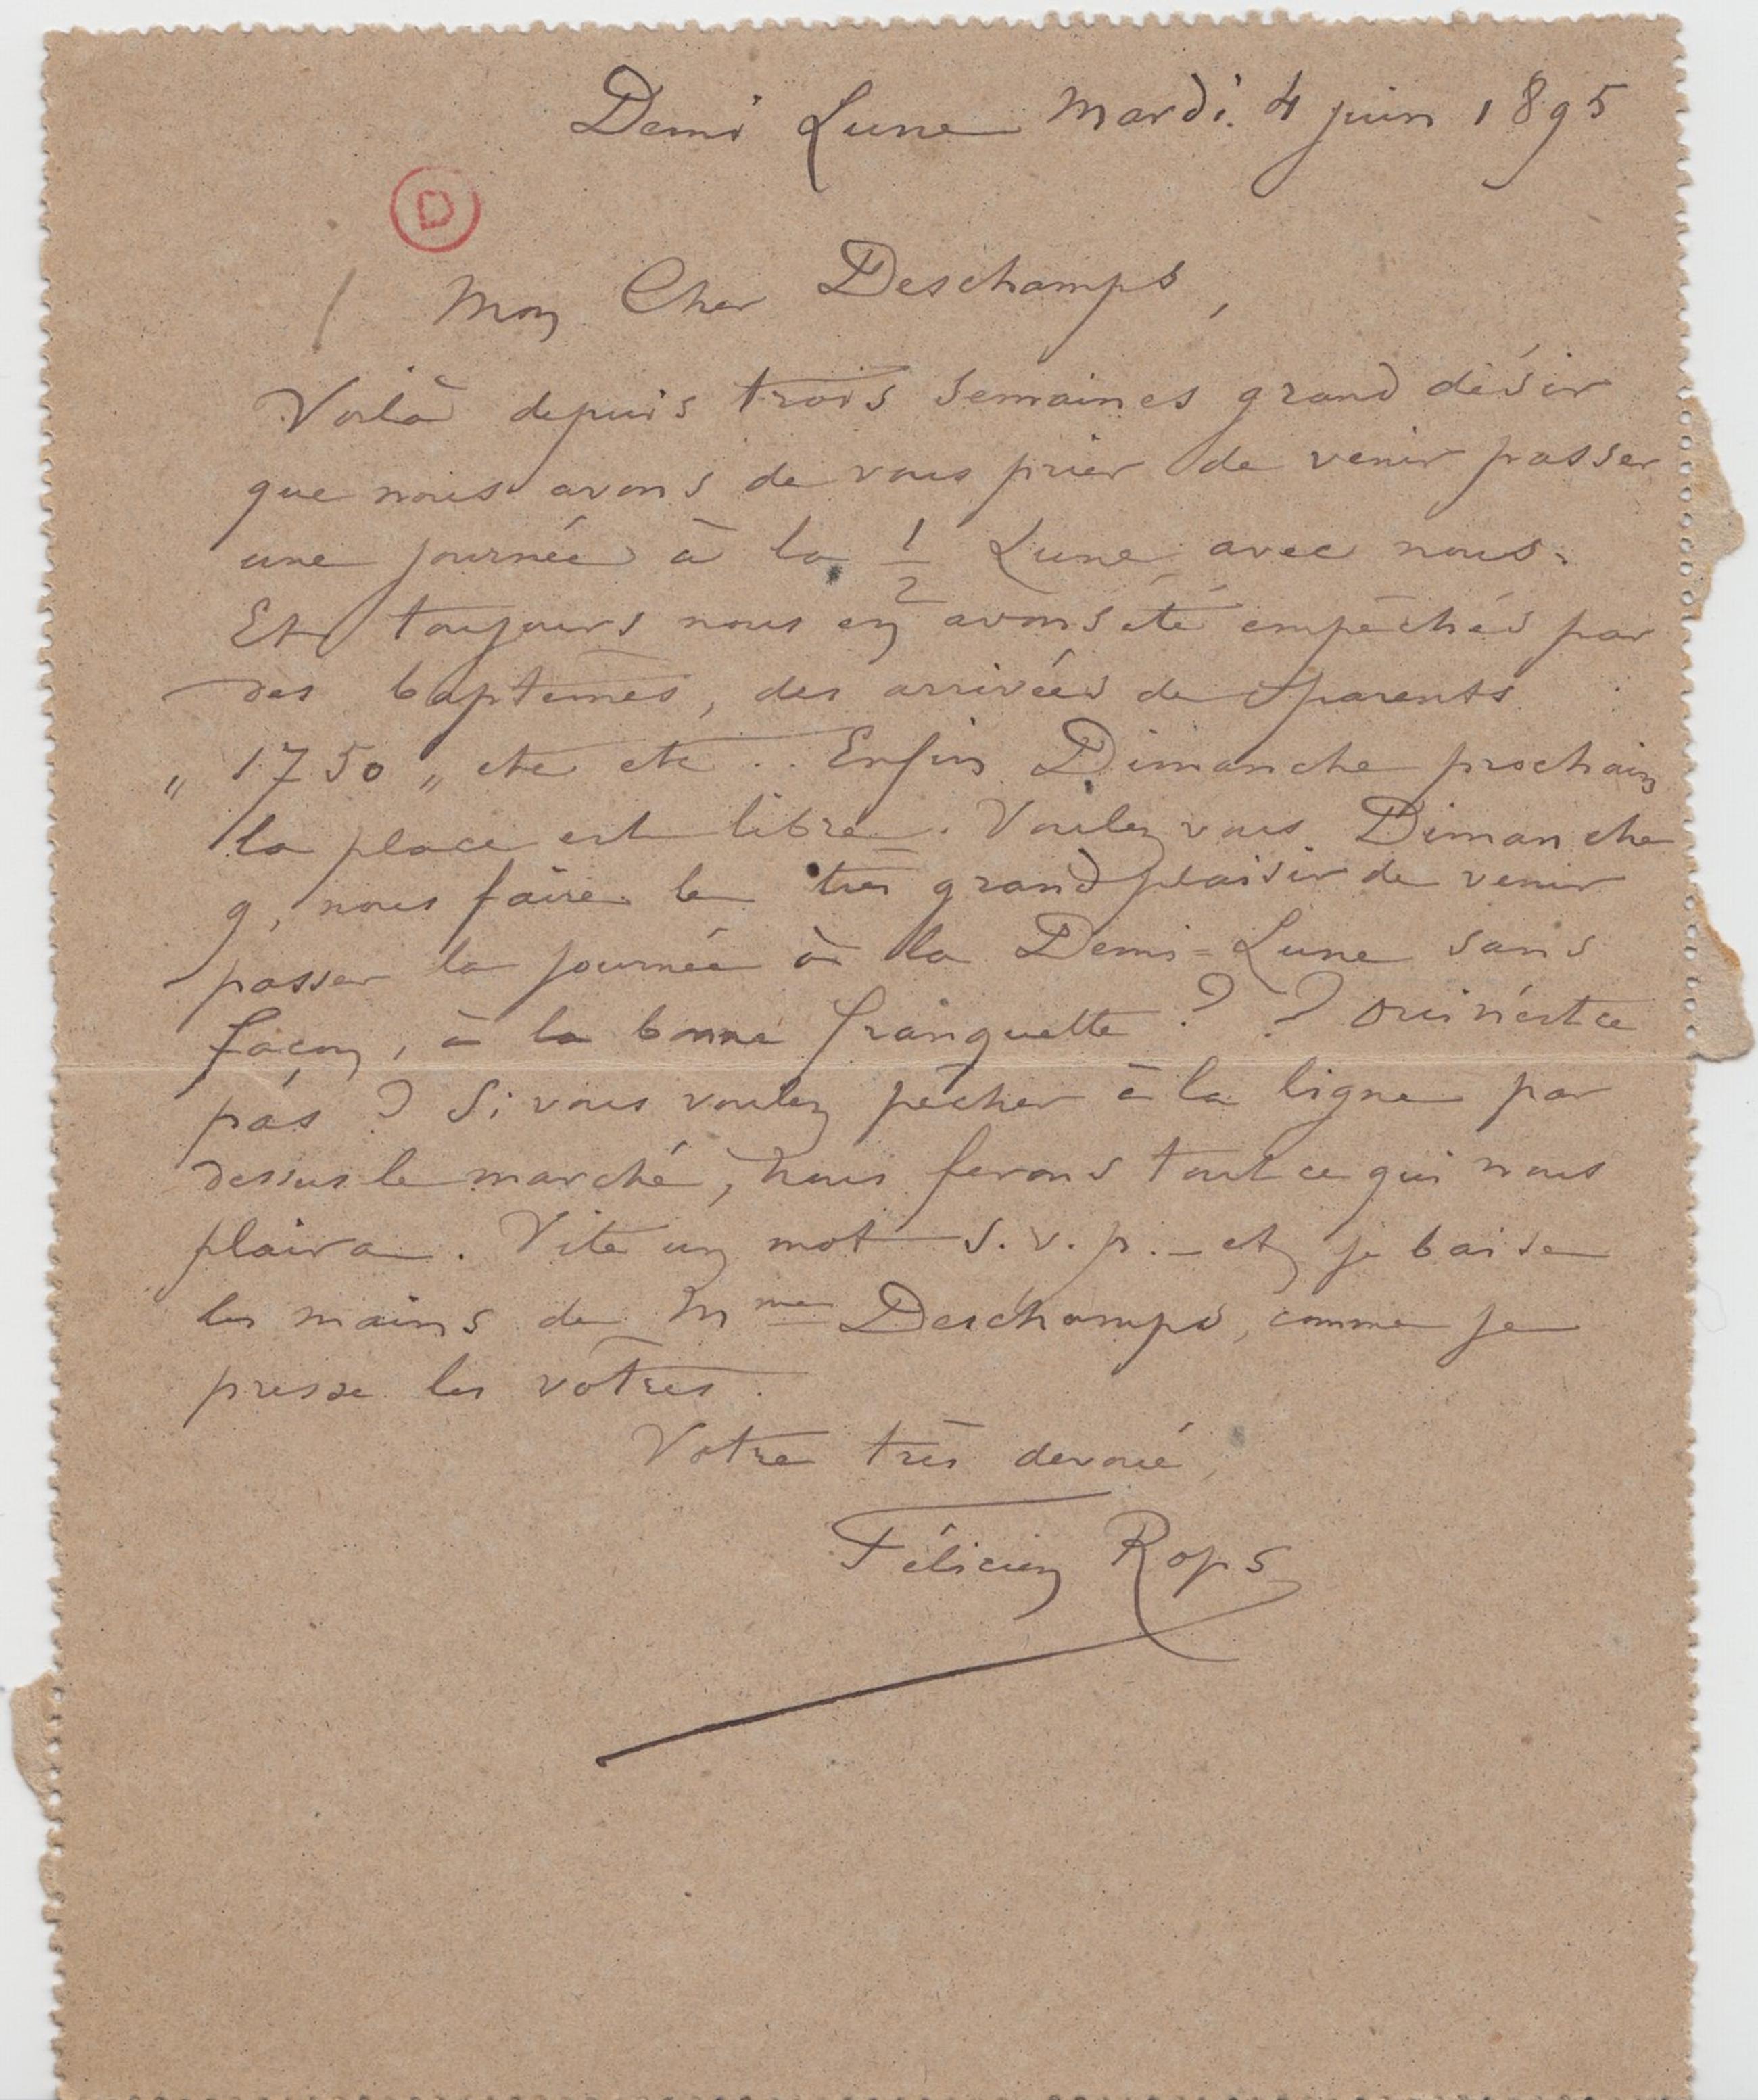 Demi Lune Mardi. 4 juin 1895
D
Mon Cher Deschamps,
Voilà depuis trois semaines grand désir
que nous avons de vous prier de venir passer
une journée à la 1/2 Lune avec nous.
Et toujours nous en avons été empêchés par
des baptêmes, des arrivées de parents
„ 1750 „ etc etc .. Enfin Dimanche prochain
la place est libre. Voulez vous Dimanche
9, nous faire le très grand plaisir de venir
passer la journée à la Demi=Lune sans
façon, à la bonne franquette ? ? Oui n'est ce
pas ? Si vous voulez pêcher à la ligne par
dessus le marché, nous ferons tout ce qui nous
plaira. Vite un mot s.v.p. – et je baise
les mains de Mme Deschamps, comme je
presse les vôtres.
Votre très dévoué,
Félicien Rops